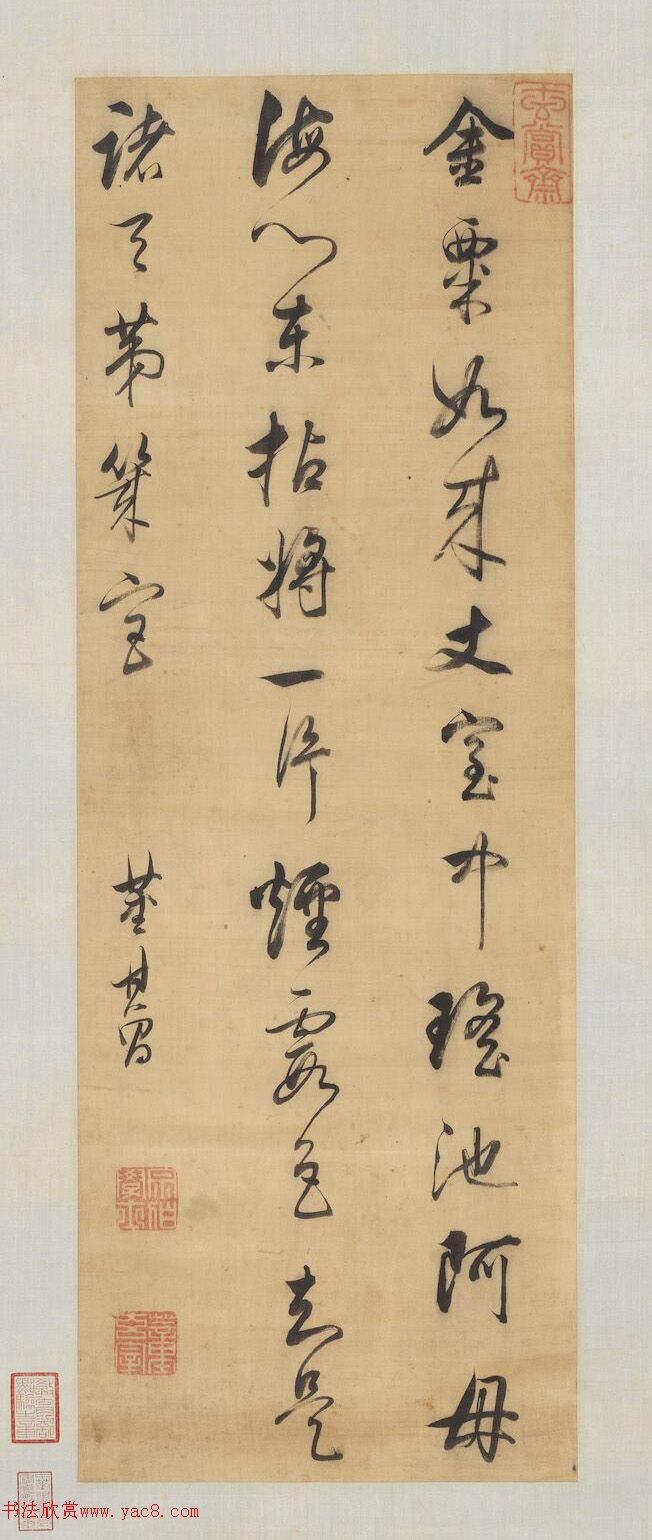 玄賞齋
金粟如來丈室中瑤池阿母
海門東拈將一片煙霞色知是
諸天第幾宮 董其昌
宗伯學士
书法欣赏www.yac8.com